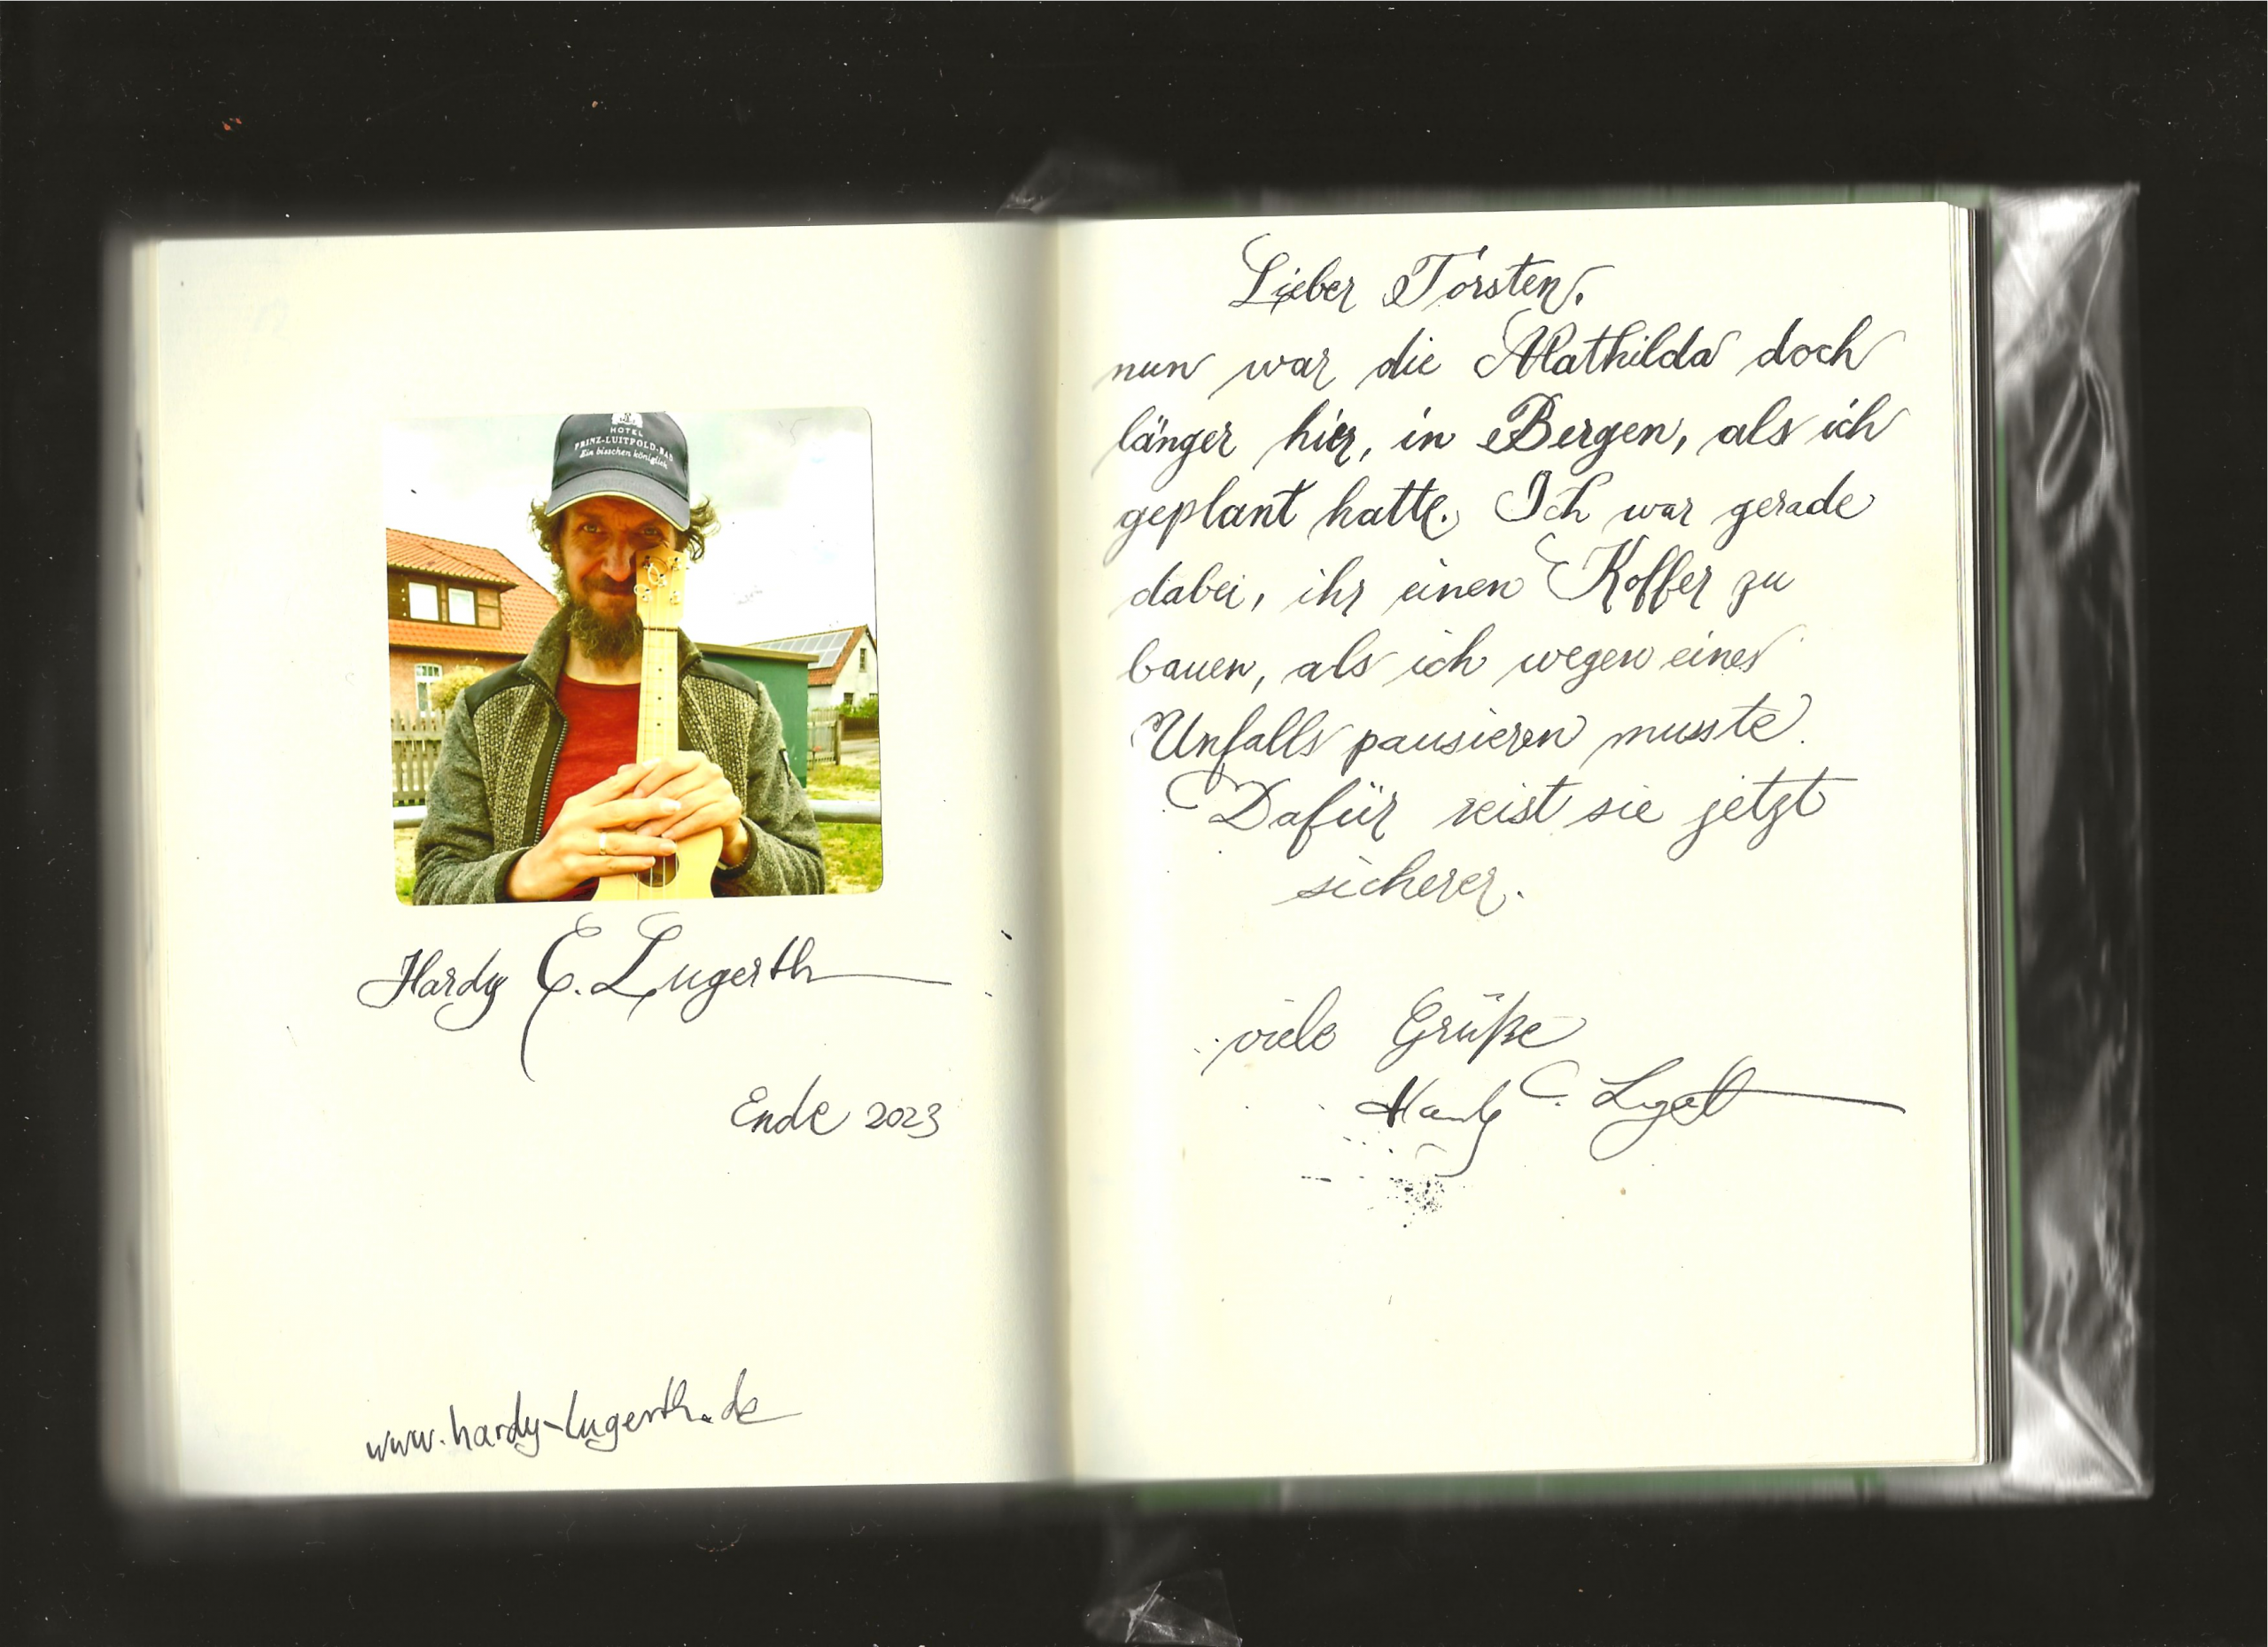 HOTEL
PRINZ-LUITPOLD-BAD
Ein bisschen königlich
Hardy E. Lugerth
Ende 2023
www.hardy-lugerth.de
Lieber Torsten,
nun war die Mathilda doch
länger hier, in Bergen, als ich
geplant hatte. Ich war gerade
dabei, ihr einen Koffer zu
bauen, als ich wegen eines
Unfalls pausieren musste.
Dafür reist sie jetzt
sicherer.
viele Grüße
Hardy E. Lugerth